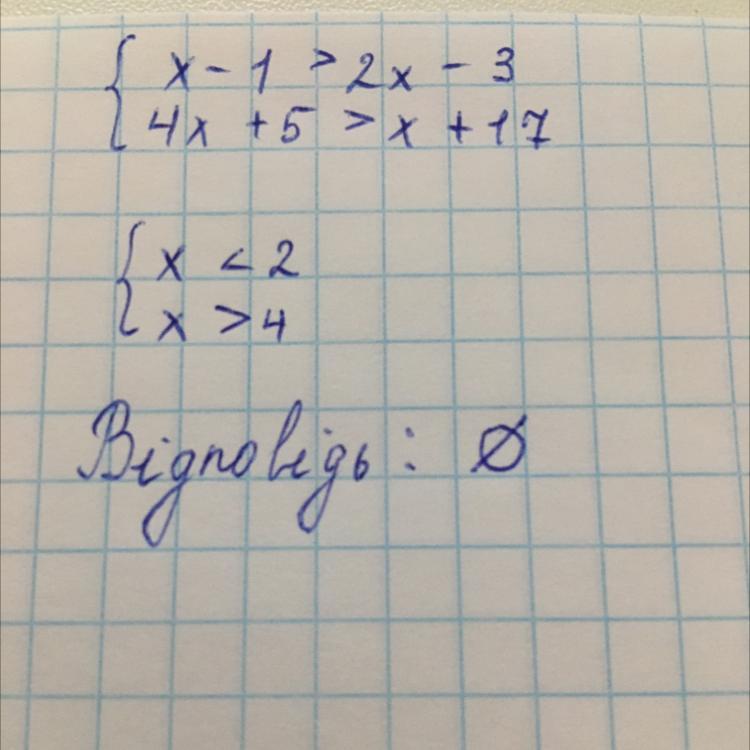 { x - 1 > 2x - 3
4x + 5 > x + 17
{ x < 2
x > 4
Відповідь: ∅